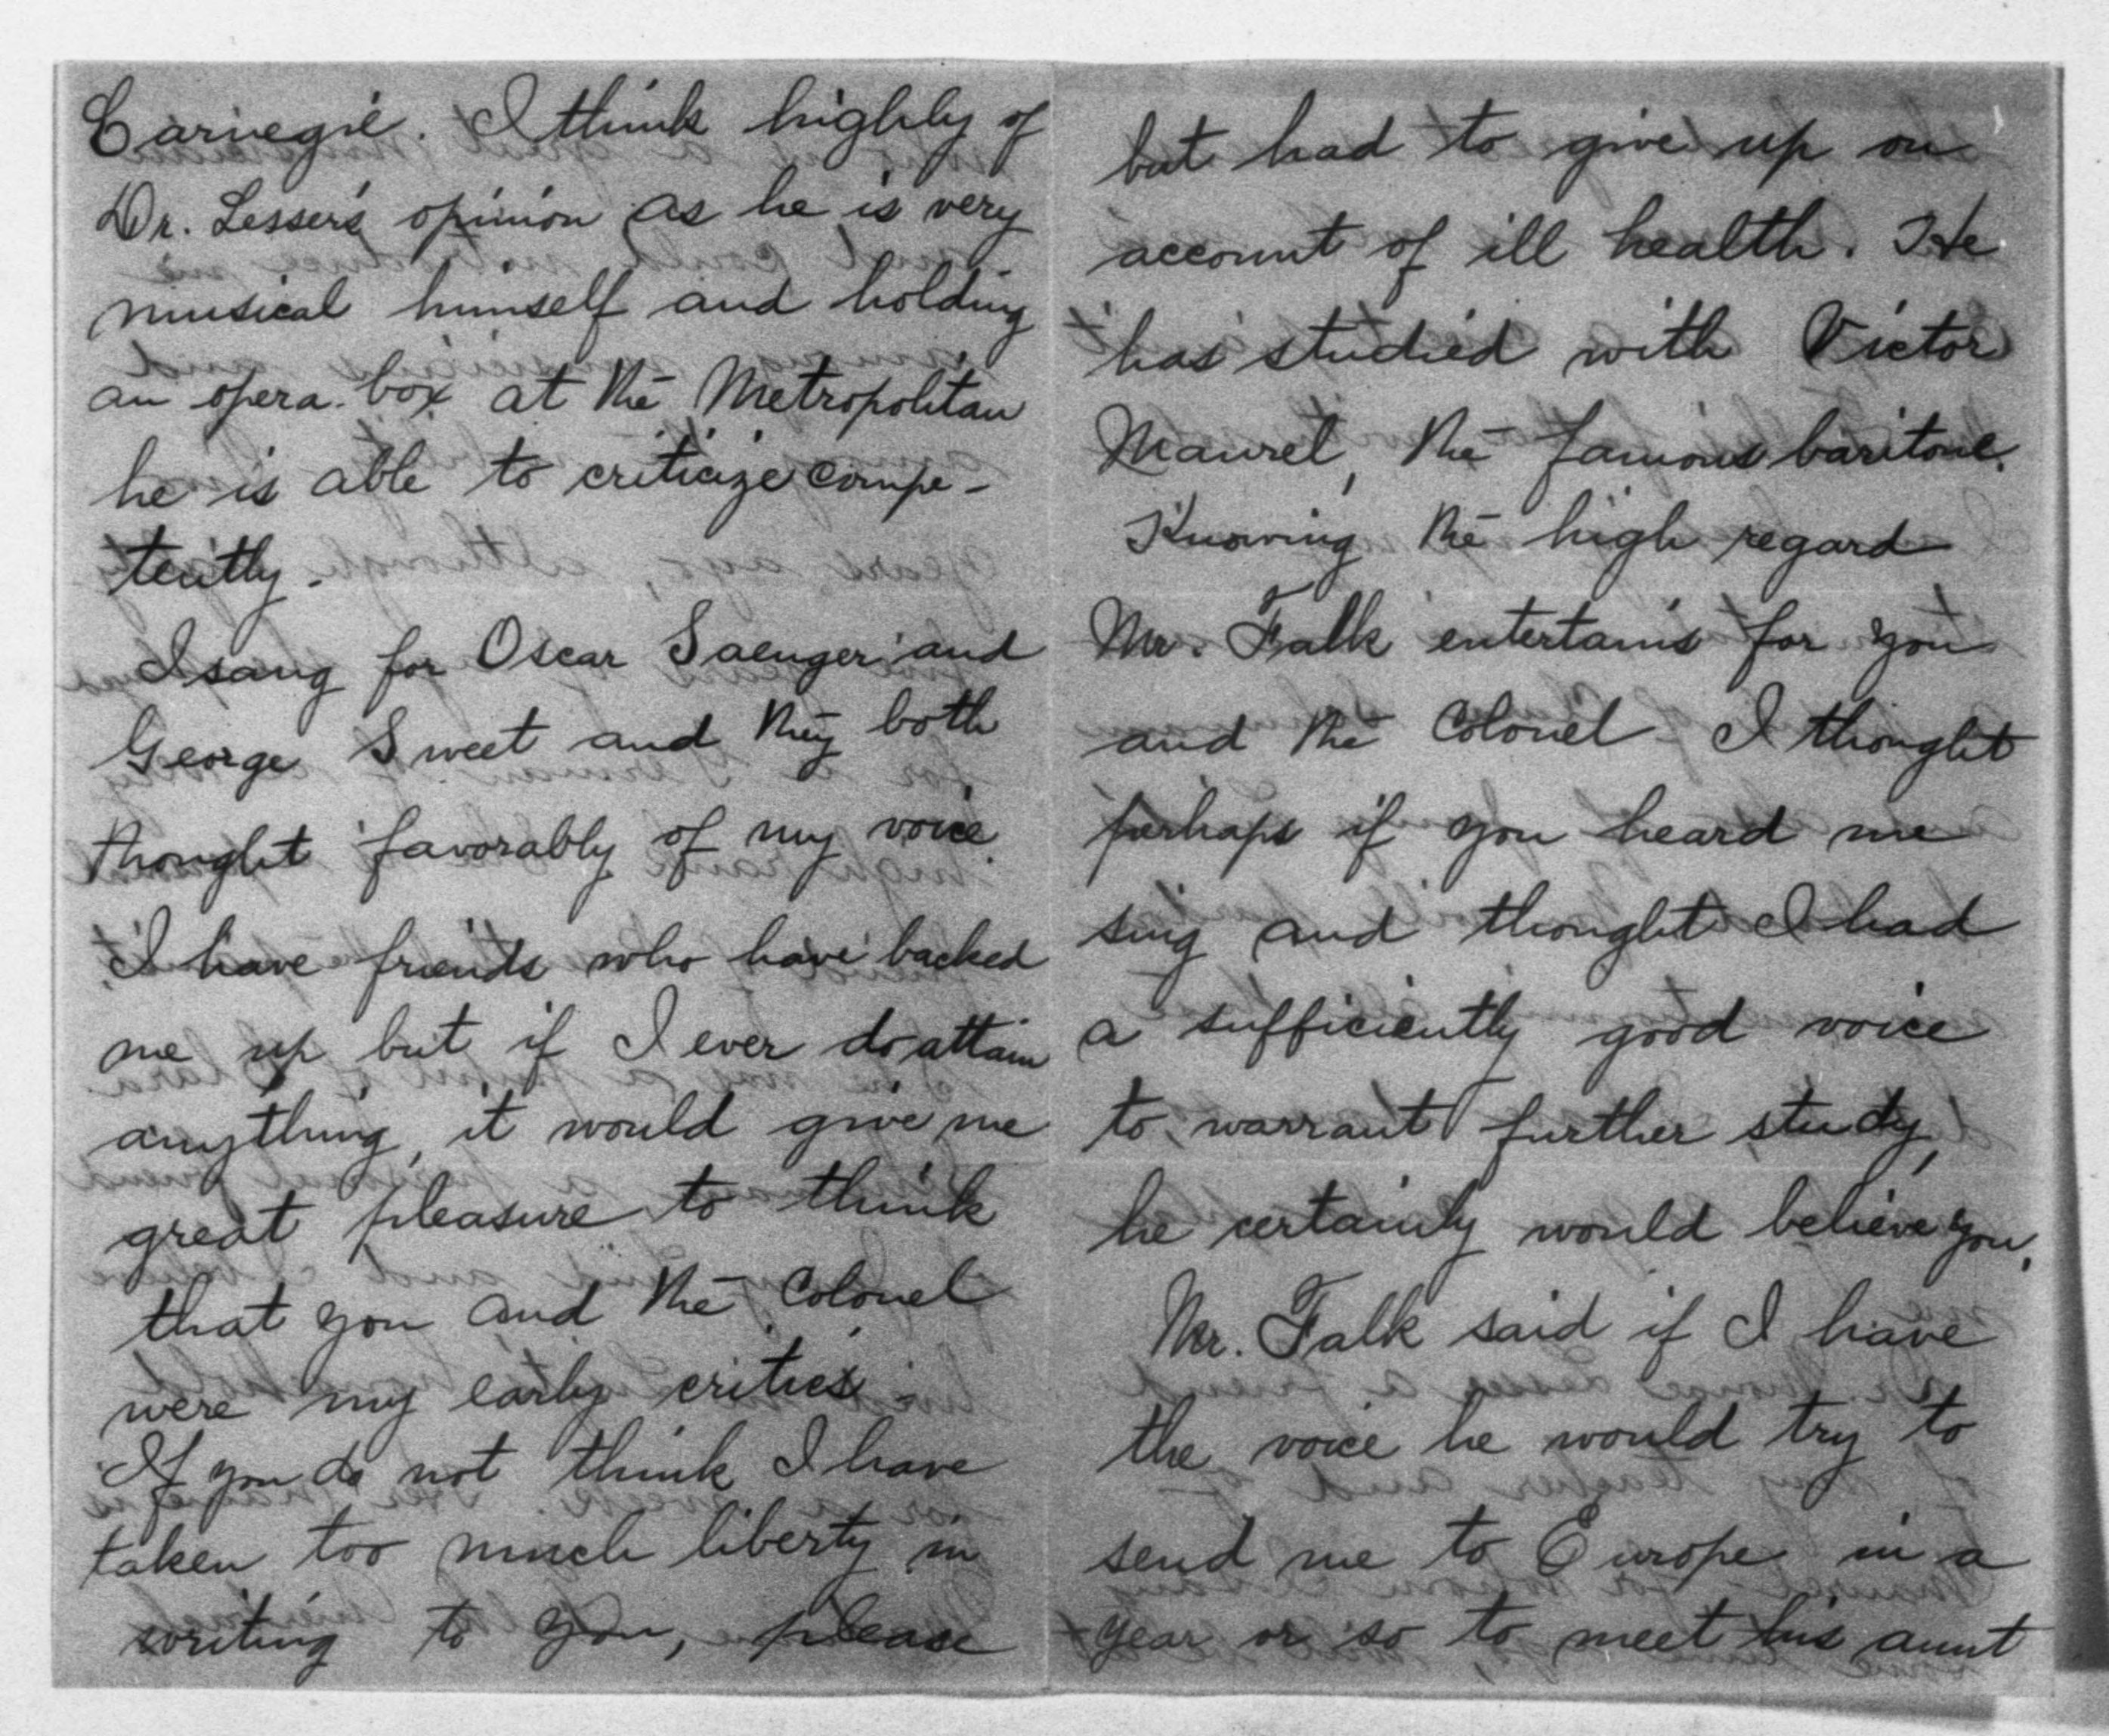 Carnegie. I think highly of
Dr. Lesser's opinion as he is very
musical himself and holding
an opera box at the Metropolitan
he is able to criticize compe-
tently.
I sang for Oscar Saenger and
George Sweet and they both
thought favorably of my voice.
I have friends who have backed
me up but if I ever do attain
anything, it would give me
great pleasure to think
that you and the Colonel
were my early critics.
If you do not think I have
taken too much liberty in
writing to you, please
but had to give up on
account of ill health. He
has studied with Victor
Maurel, the famous baritone.
Knowing the high regard
Mr. Falk entertains for you
and the Colonel I thought
perhaps if you heard me
sing and thought I had
a sufficiently good voice
to warrant further study,
he certainly would believe you.
Mr. Falk said if I have
the voice he would try to
send me to Europe in a
year or so to meet his aunt